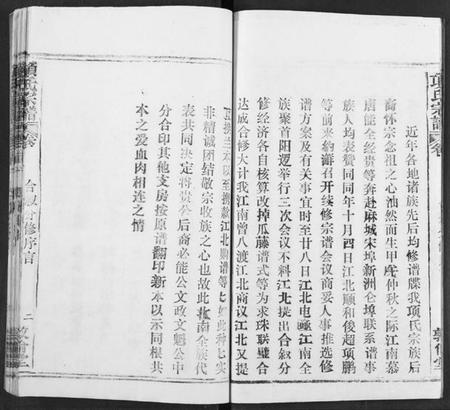 項氏宗譜
卷
敦信堂
近年各地诸族先后均修谱牒我項氏宗族后
裔怀宗念祖之心油然而生甲戌仲秋之际江南慕
唐能全经贵等奔赴麻城宋埠新洲仓埠联系谱事
族人均表赞同同年十月四日江北顺和俊超項鹏
等前来纳潮召开续修宗谱会议商妥人事推选修
谱方案及有关事宜时至廿八日江北电邀江南全
族聚首阳逻举行三次会议不料江北提出合叙分
修经济各自核算改掉瓜藤谱式等为求珠联璧合
达成合修大计我江南曾八渡江北商议江北又提
非精诚团结敬宗收族之心也故此江南全族代
表共同决定将贵公后裔必能公文政文魁公中
分合印其他支房按原谱翻印新本以示同根共
本之爱血肉相连之情
項氏宗譜
卷
合叙分修序言
二
敦信堂